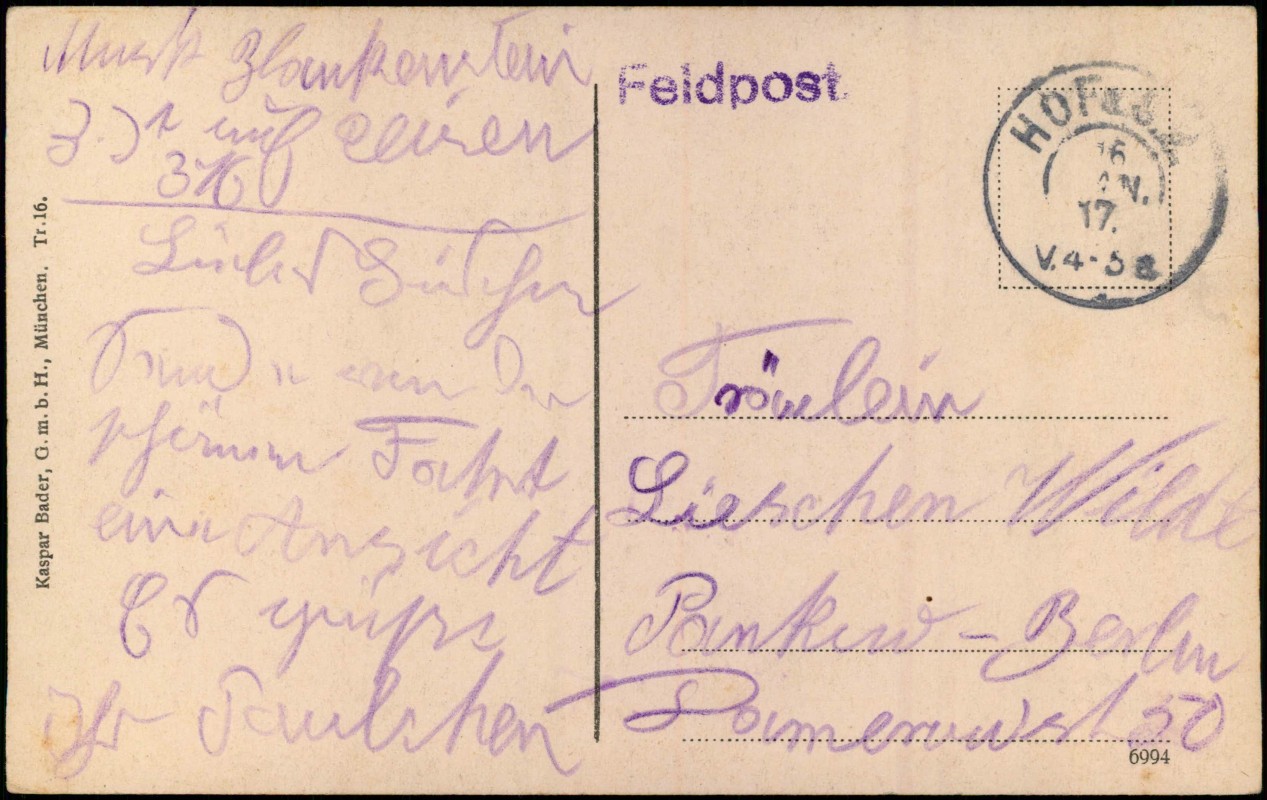 Musk Blankenstein
z. Zt auf reisen
Liebes
von der
schönen Fahrt
eine Ansicht
Es grüßt
ihr Paulchen
Kaspar Bader, G. m. b. H., München. Tr. 16.
Feldpost
HOF
16
JAN.
17.
V.4-5
Fräulein
Lieschen Wilde
Pankow - Berlin
50
6994